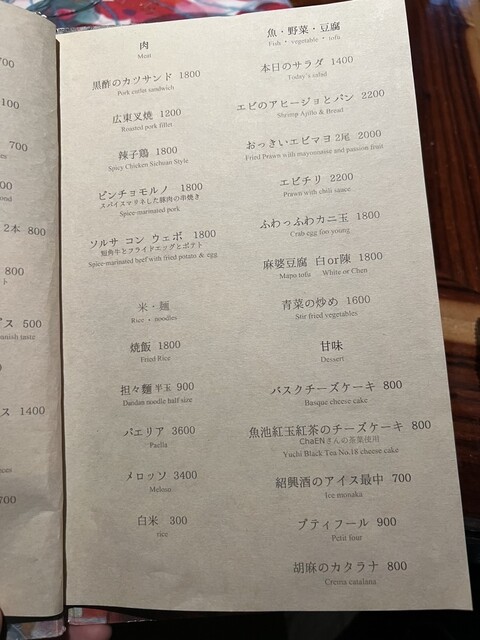 700
100
700
2本 800
800
ス 500
panish taste
ス 1400
700
肉
Meat
黒酢のカツサンド 1800
Pork cutlet sandwich
広東叉焼 1200
Roasted pork fillet
辣子鶏 1800
Spicy Chicken Sichuan Style
ピンチョモルノ 1800
スパイスマリネした豚肉の串焼き
Spice-marinated pork
ソルサ コン ウェボ 1800
短角牛とフライドエッグとポテト
Spice-marinated beef with fried potato & egg
米・麺
Rice・noodles
焼飯 1800
Fried Rice
担々麺 半玉 900
Dandan noodle half size
パエリア 3600
Paella
メロッソ 3400
白米 300
rice
魚・野菜・豆腐
Fish・vegetable・tofu
本日のサラダ 1400
Today's salad
エビのアヒージョとパン 2200
Shrimp Ajillo & Bread
おっきいエビマヨ 2尾 2000
Fried Prawn with mayonnaise and passion fruit
エビチリ 2200
Prawn with chili sauce
ふわっふわカニ玉 1800
Crab egg foo young
麻婆豆腐 白or陳 1800
Mapo tofu White or Chen
青菜の炒め 1600
Stir fried vegetables
甘味
Dessert
バスクチーズケーキ 800
Basque cheese cake
魚池紅玉紅茶のチーズケーキ 800
ChaENさんの茶葉使用
Yuchi Black Tea No.18 cheese cake
紹興酒のアイス最中 700
Ice monaka
プティフール 900
Petit four
胡麻のカタラナ 800
Crema catalana